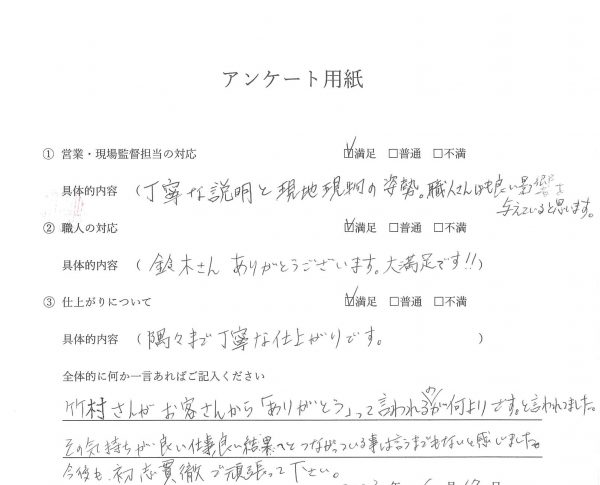 アンケート用紙
① 営業・現場監督担当の対応 ☑満足 □普通 □不満
具体的内容 （丁寧な説明と現地現物の姿勢。職人さんにも良い影響を
与えていると思います。
② 職人の対応 ☑満足 □普通 □不満
具体的内容 （ 鈴木さん ありがとうございます。大満足です!!）
③ 仕上がりについて ☑満足 □普通 □不満
具体的内容 （隅々まで丁寧な仕上がりです。 ）
全体的に何か一言あればご記入ください
竹村さんが お客さんから「ありがとう」って言われるのが何よりです。と言われてました。
その気持ちが良い仕事、良い結果へとつながっている事は言うまでもないと感じました。
今後も、初志貫徹で頑張って下さい。